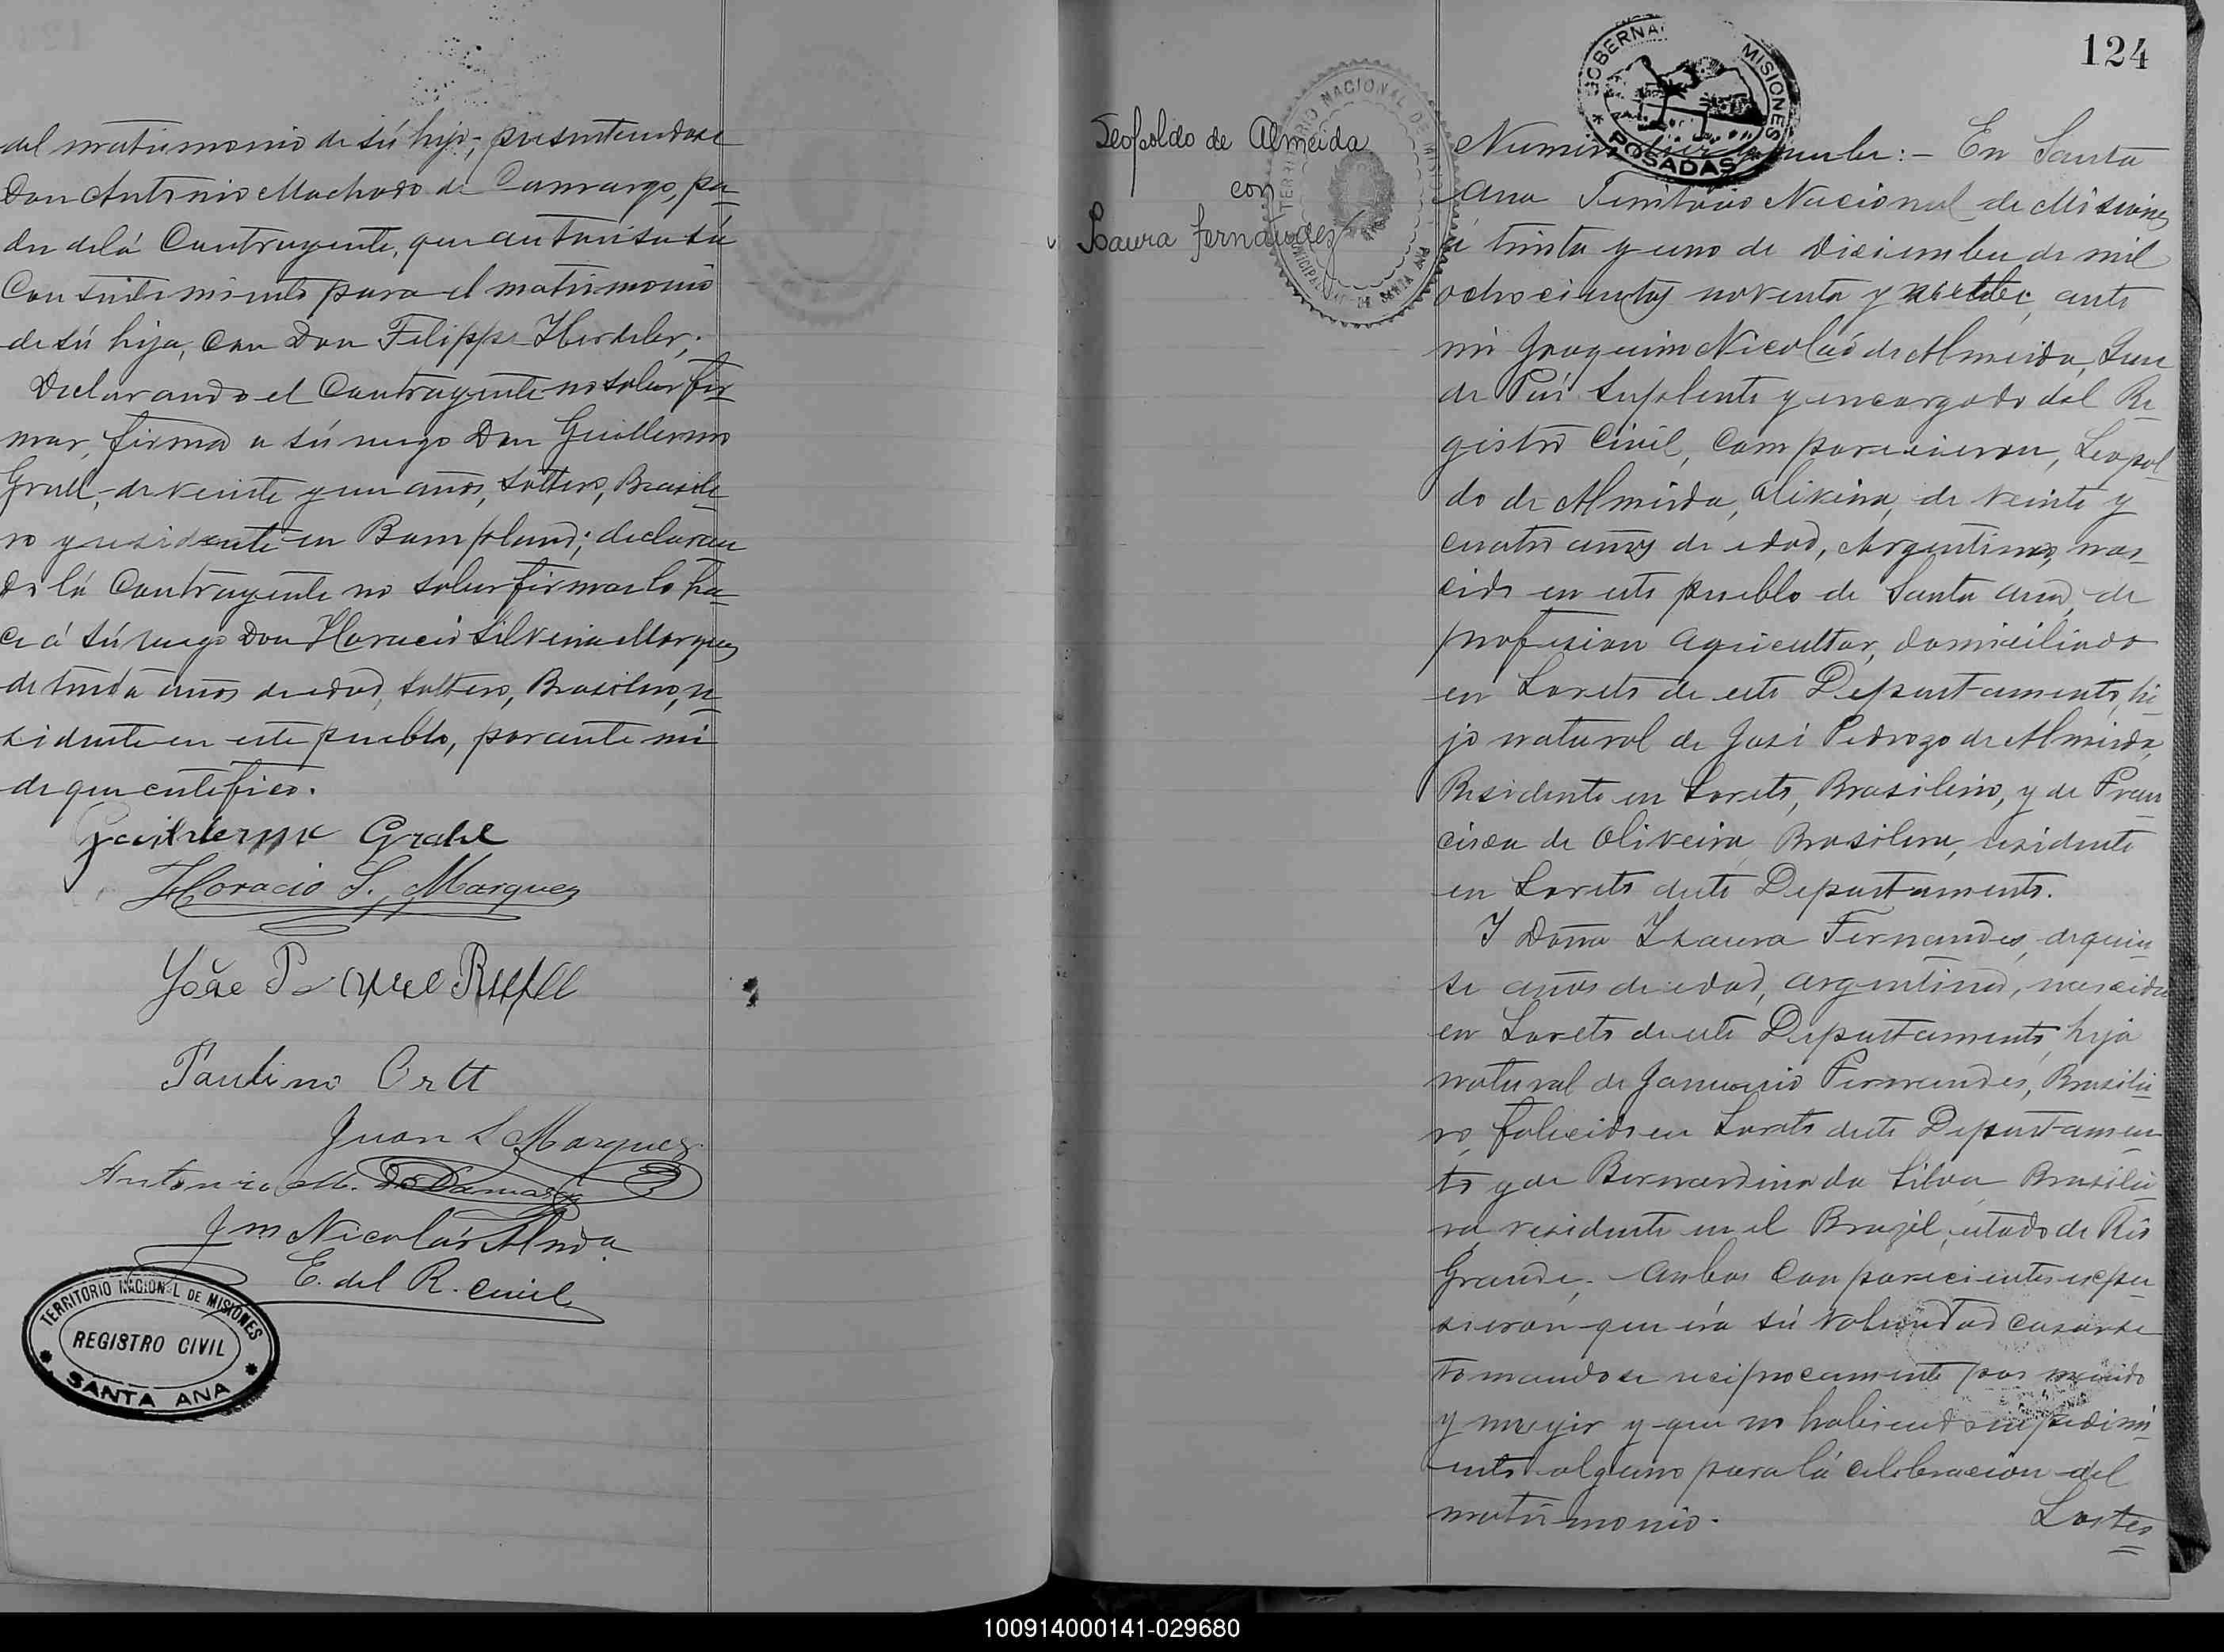 del matrimonio de sú hijo; presentandose
Don Antonio Machado de Camargo, pa=
dre de lá Contrayente, que autorisa sú
Consentimiento para el matrimonio
de sú hija, con Don Filippe
Declarando el Contrayente no saber fir=
mar, firma a sú ruego Don Guillermo
Grall, de veinte y un anos, soltero, Brasile=
ro y residente en Bompland; declaran
do lá Contrayente no saber firmar lo ha=
ce á sú ruego Don Horacio Silveira Marques
de trinta anos de edad, soltero, Brasilero, re=
sidente en este pueblo, por ante mi
de que certifico.
Horacio S. Marques
João
Paulino Ortt
Juan S Marques
Antonio M. de Camargo
Jm Nicoláo Almda
E. del R. Civil
TERRITORIO NACIONAL DE MISIONES
REGISTRO CIVIL
* SANTA ANA *
124
GOBERNA MISIONES
* POSADAS *
TERRITORIO NACIONAL DE MISIONES
MUNICIPALIDAD DE SANTA ANA
Leopoldo de Almeida
con
Isaura Fernandes
Numero :- En Santa
Ana Territorio Nacional de Misiones
á trinta y uno de Diciembre de mil
ochocientos noventa y ante
mi Joaquim Nicoláo de Almeida, Jues
de Pás Suplente y encargado del Re=
gistro Civil, Comparecieron, Leopol=
do de Almeida, Oliveira, de veinte y
cuatro anos de edad, Argentino, nas=
cido en este pueblo de Santa Ana, de
profesion agricultor, domiciliado
en Loreto de este Departamento, hi=
jo natural de José Pedrozo de Almeida,
Residente en Loreto, Brasilero, y de Fran=
cisca de Oliveira, Brasilera, residente
en Loreto deste Departamento.
Y Dona Isaura Fernandes, de quin=
se anos de edad, argentina, nascida
en Loreto de este Departamento, hija
natural de Januario Fernandes, Brasile=
ro, falecido en Loreto deste Departamen=
to y de Bernardina da Silva, Brasile=
ra, residente en el Brazil, estado de Rio
Grande. Ambos Comparecientes expu=
sieron que éra sú voluntad casarse
tomandose reciprocamente por marido
y mujer y que no habiendo impedimi=
ento alguno para lá celebracion del
matrimonio. Los tes
100914000141-029680